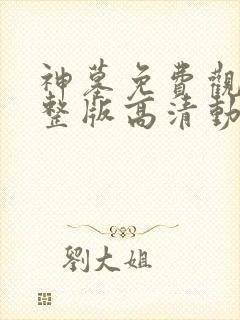 神墓免費觀
整版高清動
劉大姐